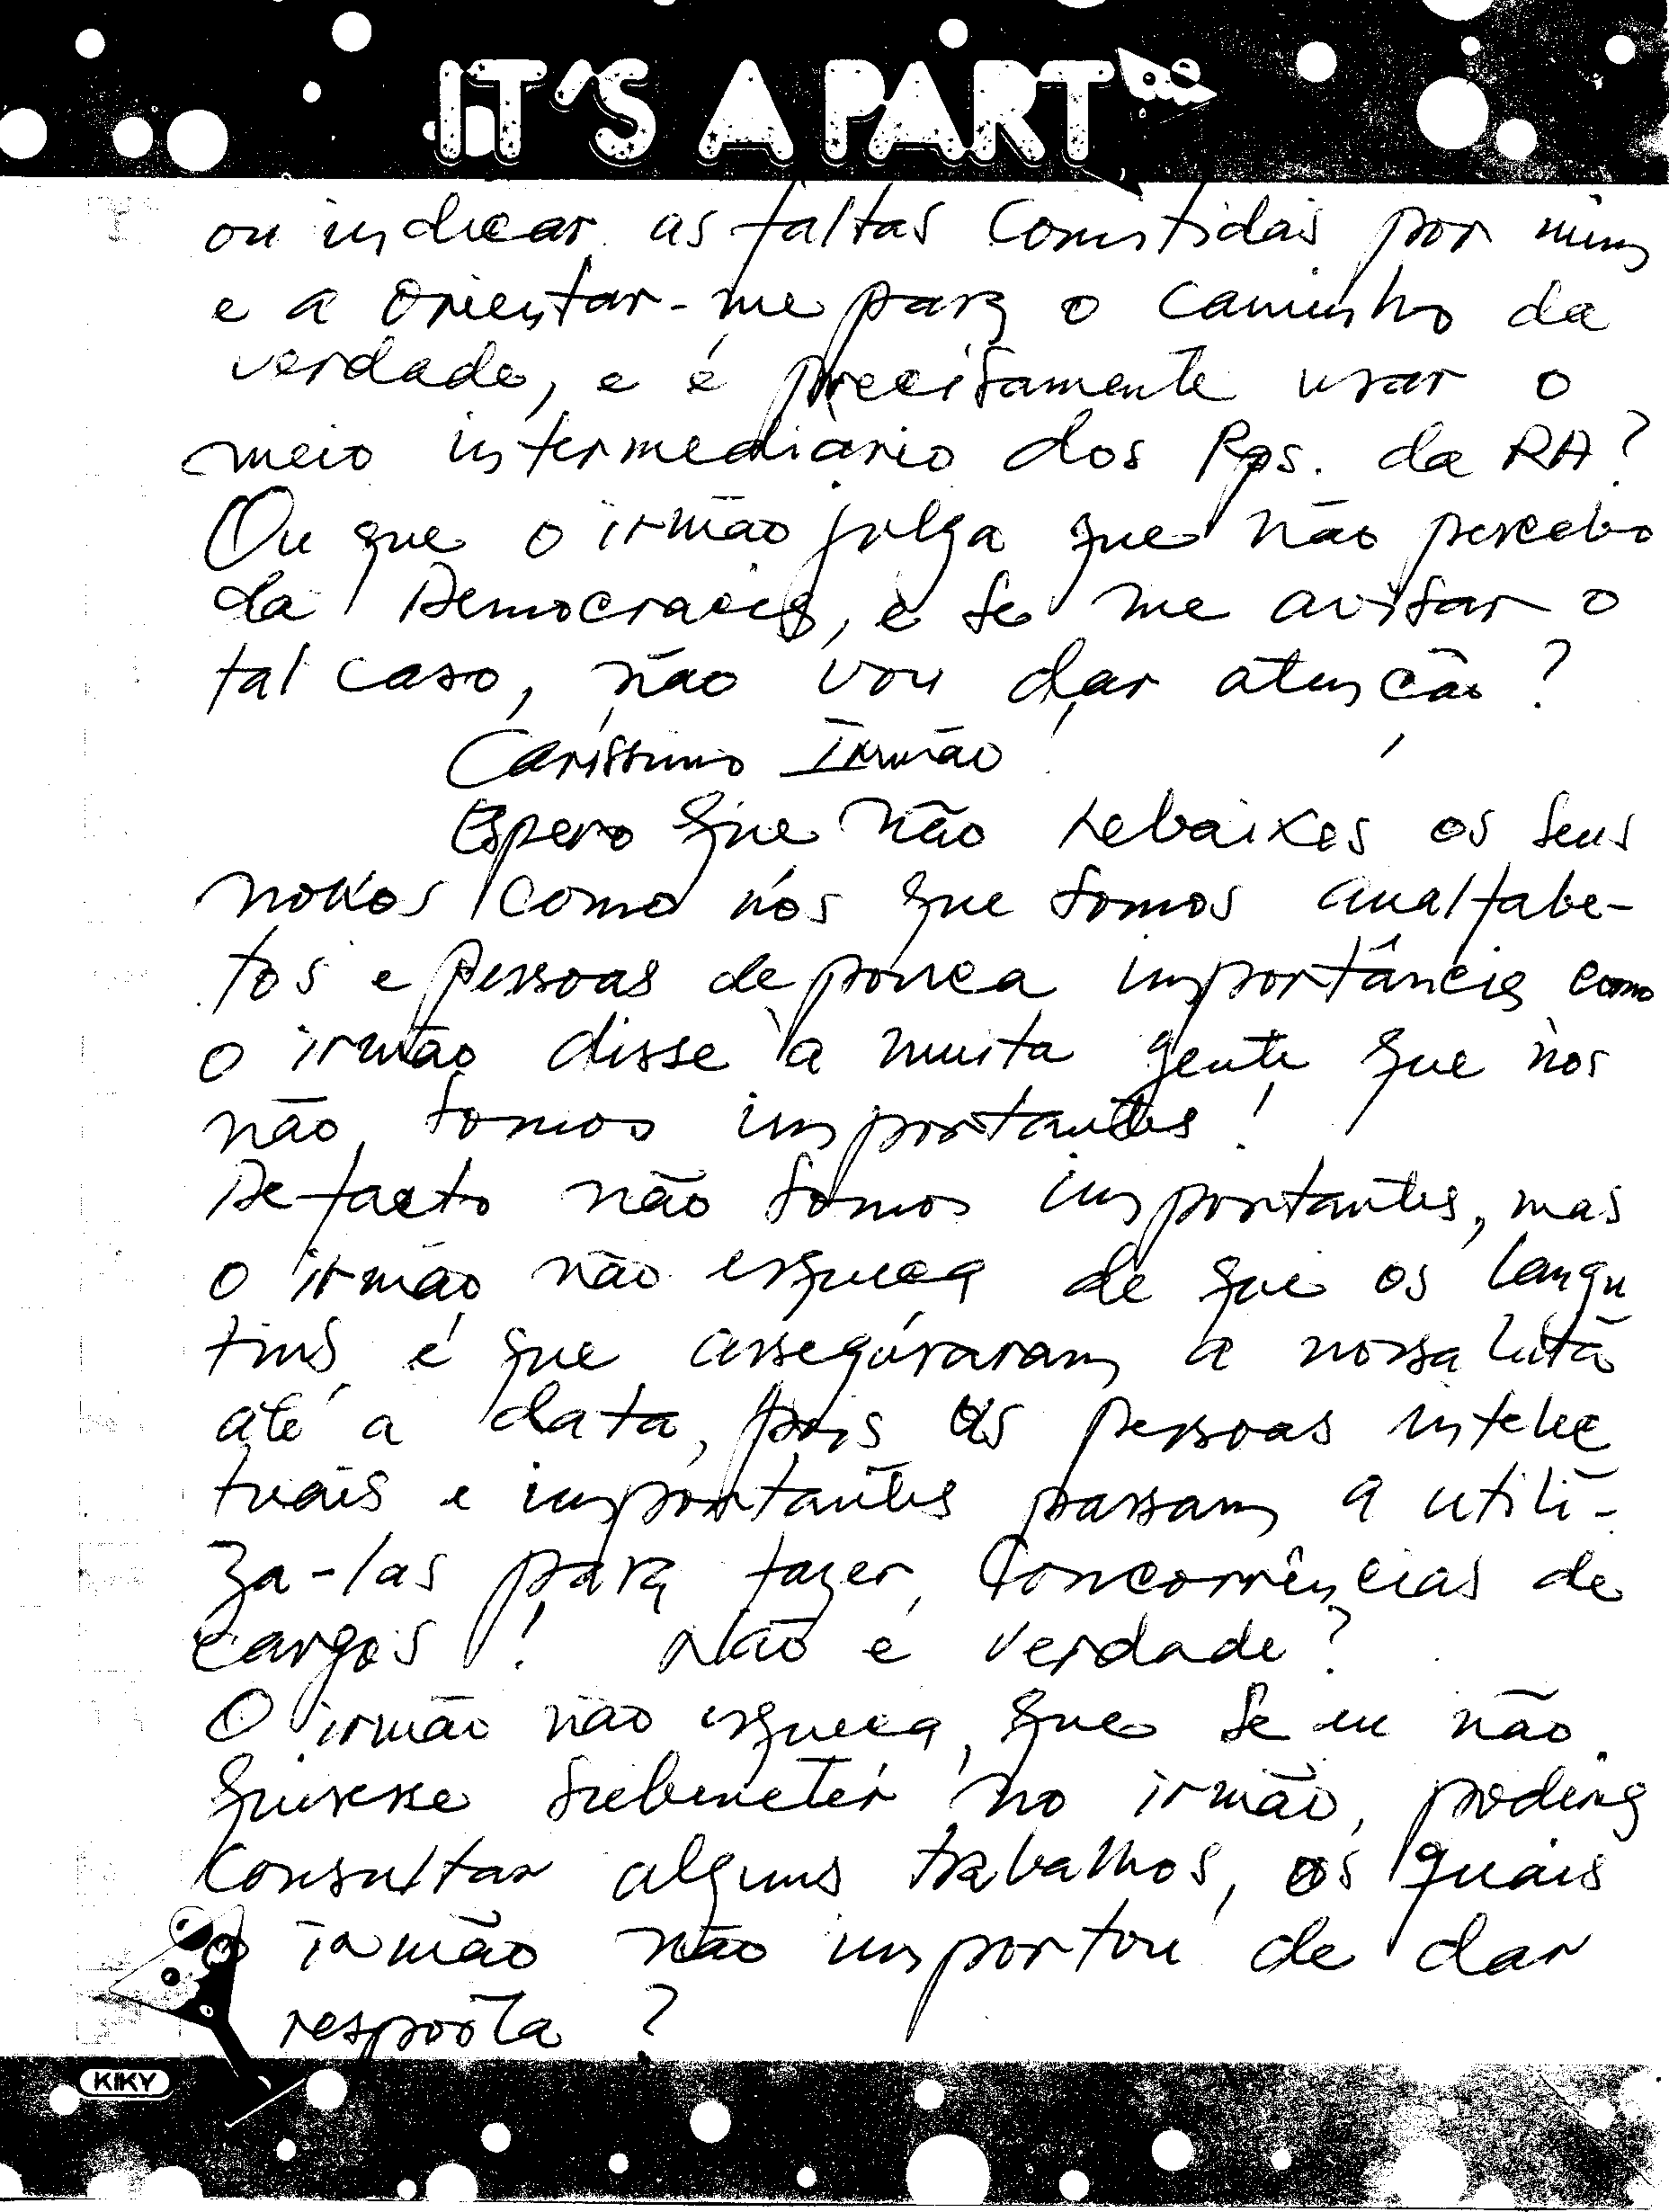 IT'S A PART
ou indicar as faltas cometidas por mim
e a orientar-me para o caminho da
verdade, e é precisamente usar o
meio intermediário dos Rps. da RA?
Ou que o irmão julga que não percebo
da Democracia, e se me avisar o
tal caso, não vou dar atenção?
Caríssimo Irmão!
Espero que não rebaixes os seus
como nós que somos analfabe-
tos e pessoas de pouca importância como
o irmão disse à muita gente que nós
não somos importantes!
De facto não somos importantes, mas
o irmão não esqueça de que os
é que asseguraram a nossa luta
até a data, pois as pessoas intelec
tuais e importantes passam a utili-
za-las para fazer, Concorrências de
cargos! Não é verdade?
O irmão não esqueça, que se eu não
quisesse submeter no irmão, podia
consultar alguns trabalhos, os quais
o irmão não importou de dar
resposta?
KIKY